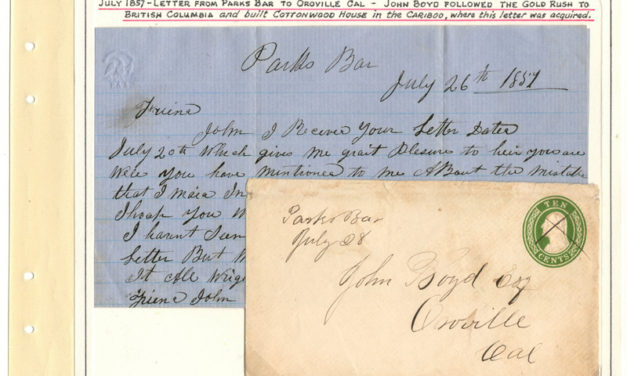 JULY 1857 - LETTER FROM PARKS BAR TO OROVILLE CAL - JOHN BOYD FOLLOWED THE GOLD RUSH TO
BRITISH COLUMBIA and built COTTONWOOD HOUSE in the CARIBOO, where this letter was acquired.
Parks Bar
July 26th 1857
Friend
John I Recived Your Letter Dated
July 20th Which gives me grait Plesure to heir you are
Were You have Mentioned to me About the Mistake
that I
I hoap You
I havnt
Letter But
It All Wright
Friend John
Parks Bar
July 28
TEN
CENTS
John Boyd Esq
Oroville
Cal